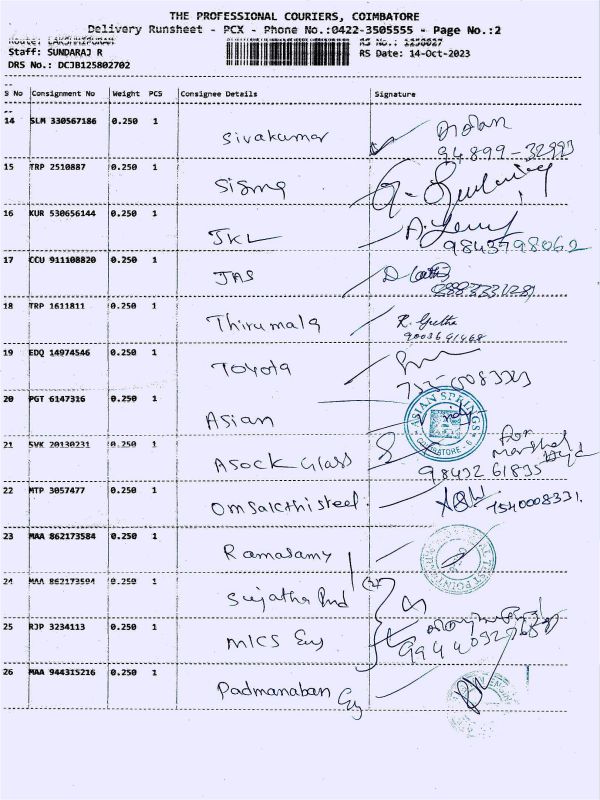 THE PROFESSIONAL COURIERS, COIMBATORE
Delivery Runsheet - PCX - Phone No.:0422-3505555 - Page No.:2
Route: LAKSHMIPURAM RS No.: 1258027
Staff: SUNDARAJ R RS Date: 14-Oct-2023
DRS No.: DCJB125802702
S No Consignment No Weight PCS Consignee Details Signature
14 SLM 330567186 0.250 1
Sivakumar
94899-32993
15 TRP 2510887 0.250 1
Sigma
16 KUR 530656144 0.250 1
JKL
9843798062
17 CCU 911108820 0.250 1
JAS
18 TRP 1611811 0.250 1
Thirumala R. Geetha
9003691468
19 EDQ 14974546 0.250 1
Toyota
20 PGT 6147316 0.250 1
Asian ASIAN SPRINGS
COIMBATORE - 6
21 SVK 20130231 0.250 1
for
Asock Glass
98432 61835
22 MTP 3057477 0.250 1
Omsakthi steel 7540008331.
23 MAA 862173584 0.250 1
Ramasamy
24 MAA 862173594 0.250 1
Sujatha Ind
25 RJP 3234113 0.250 1
MICS Eng
26 MAA 944315216 0.250 1
Padmanaban Eng